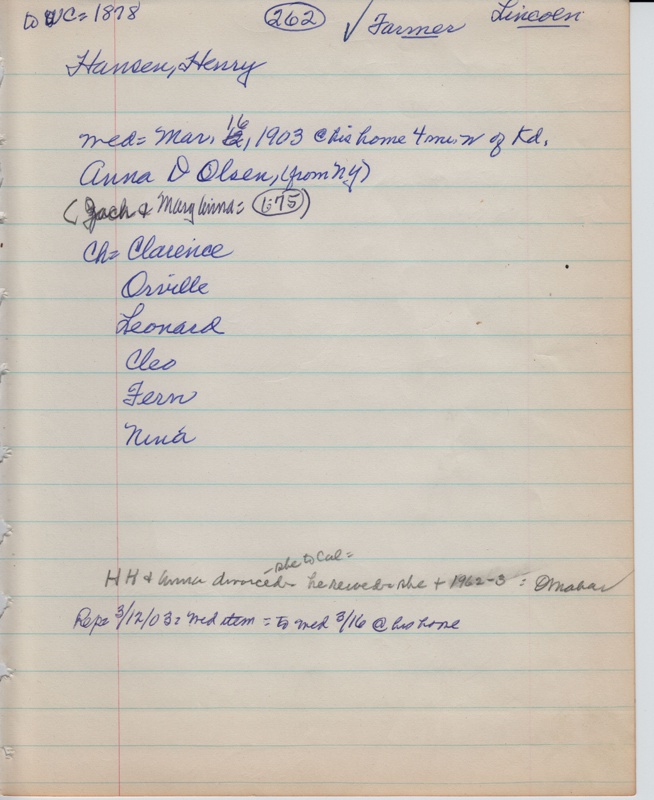 to WC= 1878 262 ✓ Farmer Lincoln
Hansen, Henry
med= Mar, 16, 1903 @ his home 4 mi. N of Kd.
Anna D Olsen, (from NY)
(Jach & Mary Anna= 1:75)
Ch= Clarence
Orville
Leonard
Cleo
Fern
Nina
- she to Cal=
HH & Anna divorced - he rewed - she + 1962-3 : Omaha
Rep= 3/12/03: wed item = to wed 3/16 @ his home